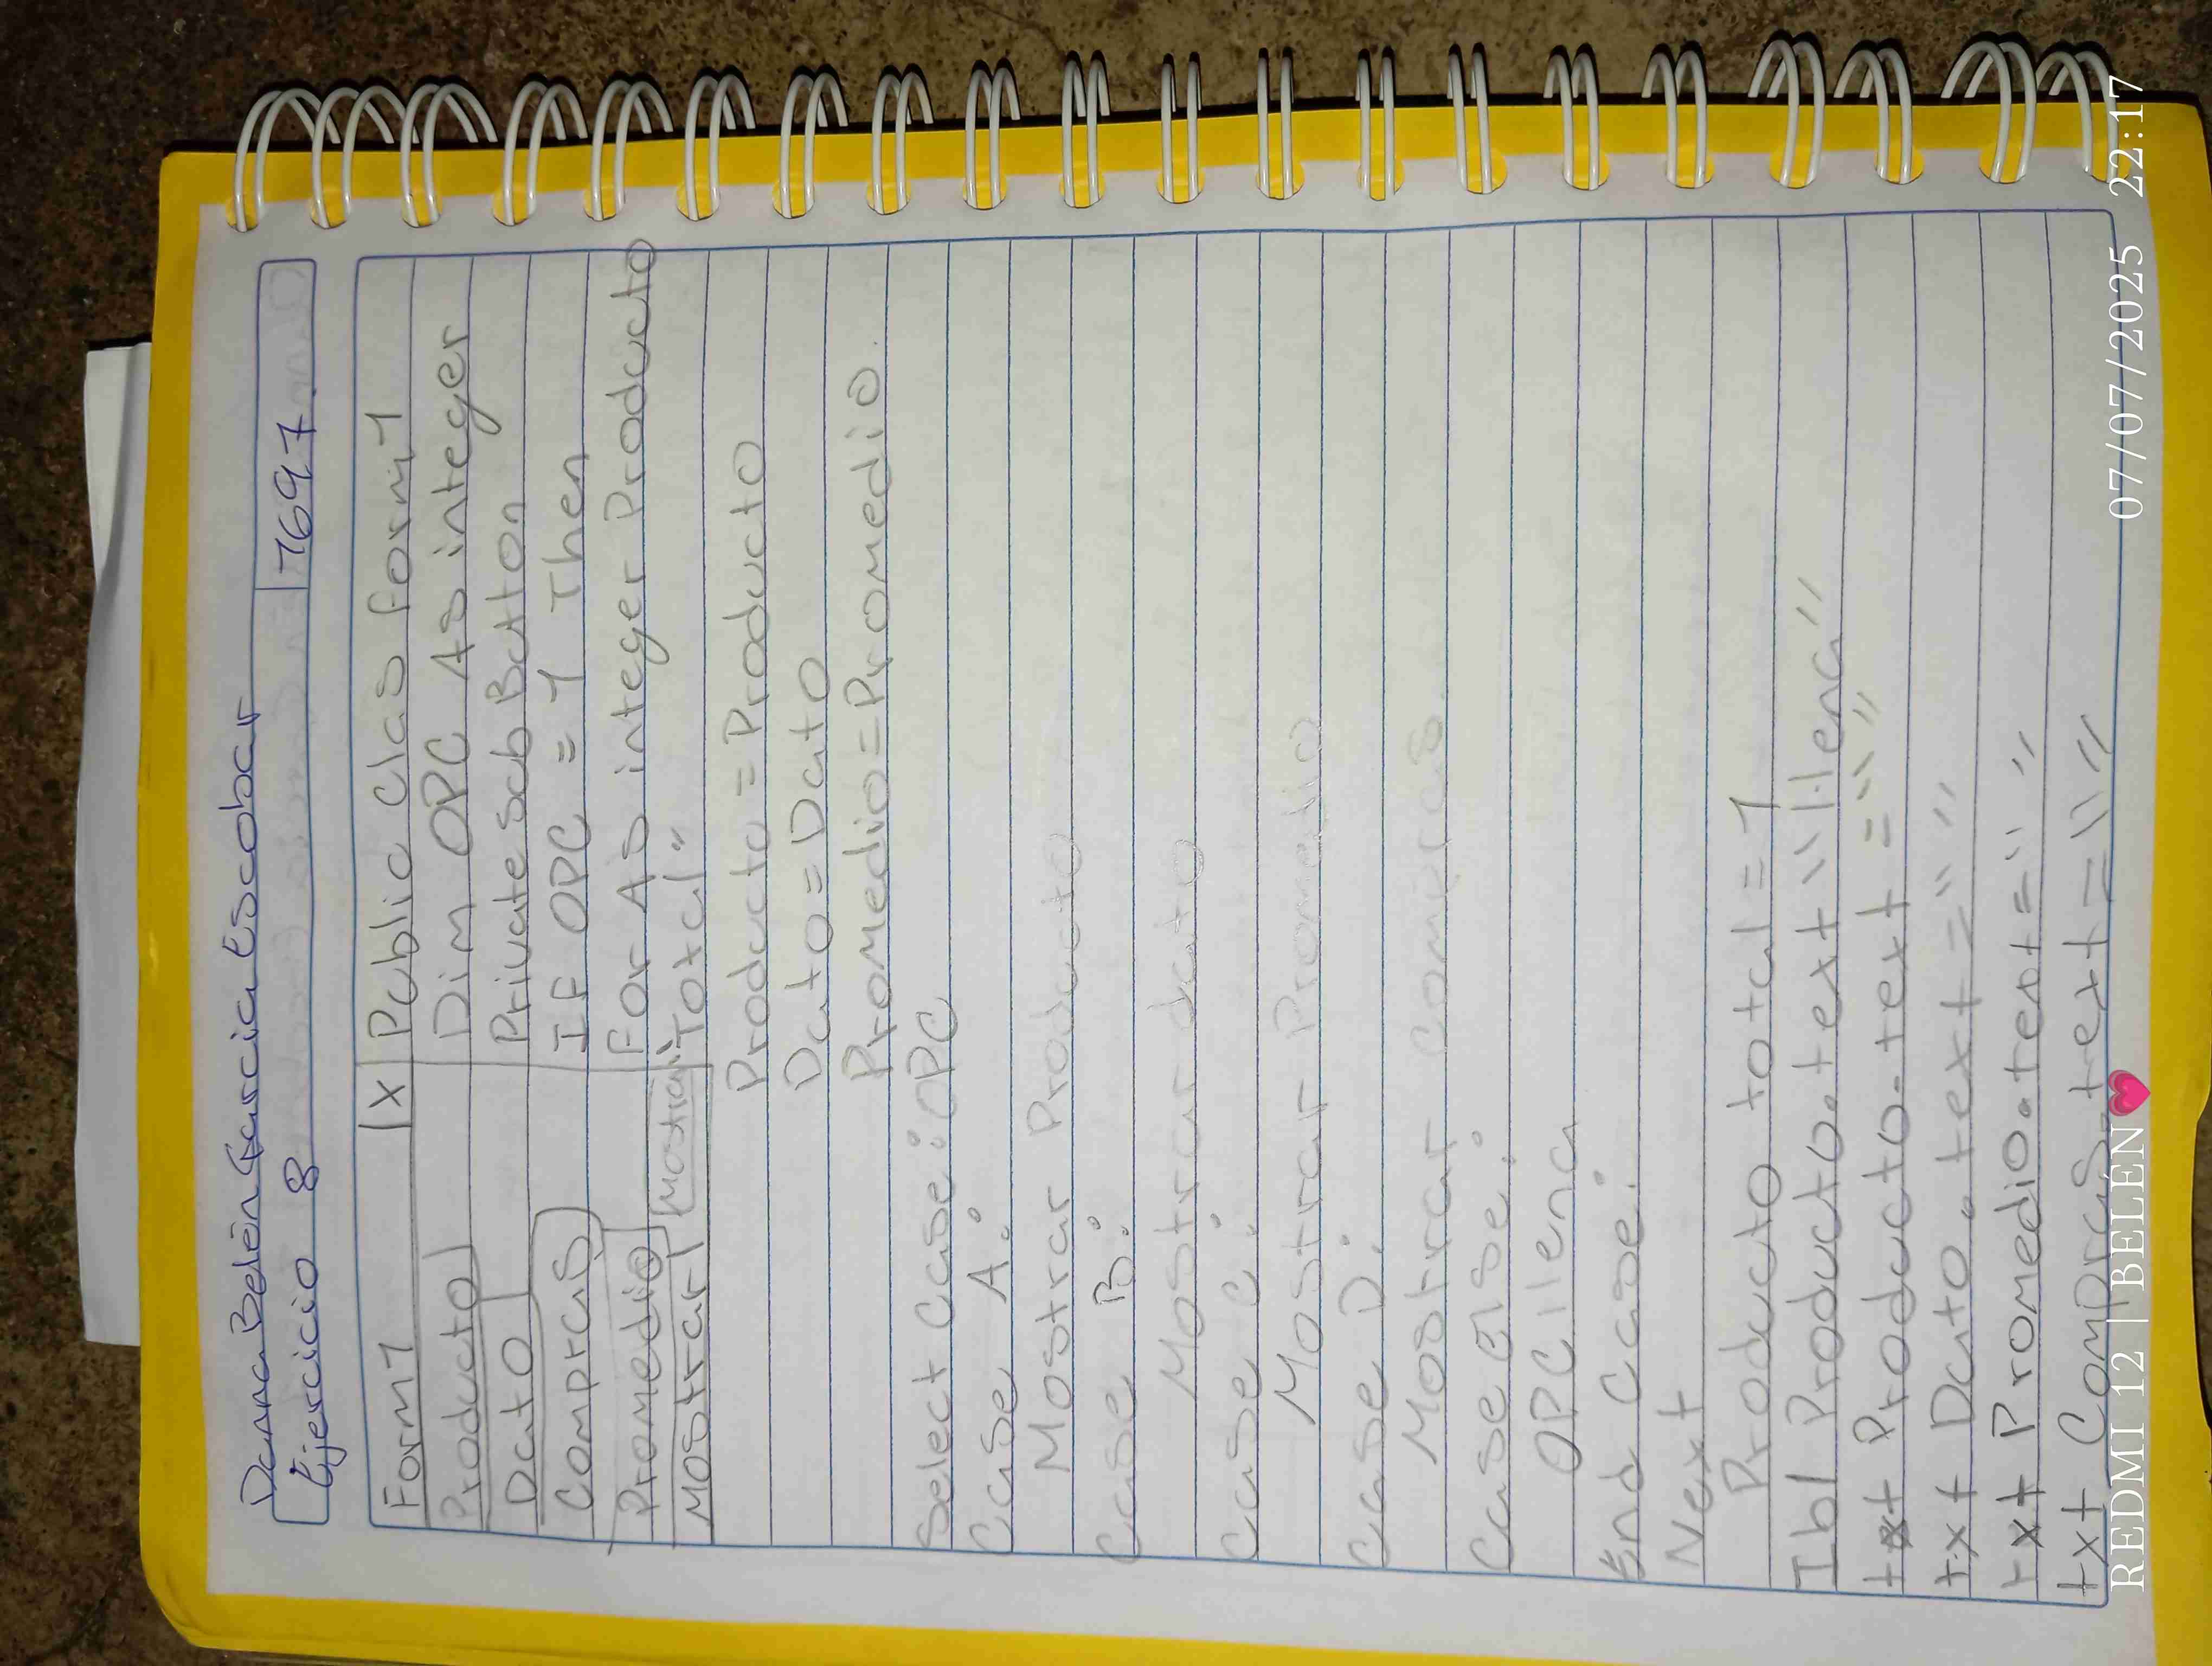 Danna Belén Garcia Escobar
Ejercicio 8 1697
Form1 X Public Clas Form1
Producto Dim OPC As integer
Dato Private Sub Button
Compras IF OPC = 1 Then
Promedio For As integer Producto
Mostrar Mostrar "Total"
Producto = Producto
Dato = Dato
Promedio = Promedio.
Select Case: OPC
Case A:
Mostrar Producto
Case B:
Mostrar dato
Case C:
Mostrar Promedio
Case D:
Mostrar Compras
Case Else:
OPC llena
End Case:
Next
Producto total = 1
Ibl Producto.text "llena"
txt Producto.text = ""
txt Dato.text = ""
txt Promedio.text = " "
txt Compras.text = ""
REDMI 12 | BELÉN💗 07/07/2025 22:17